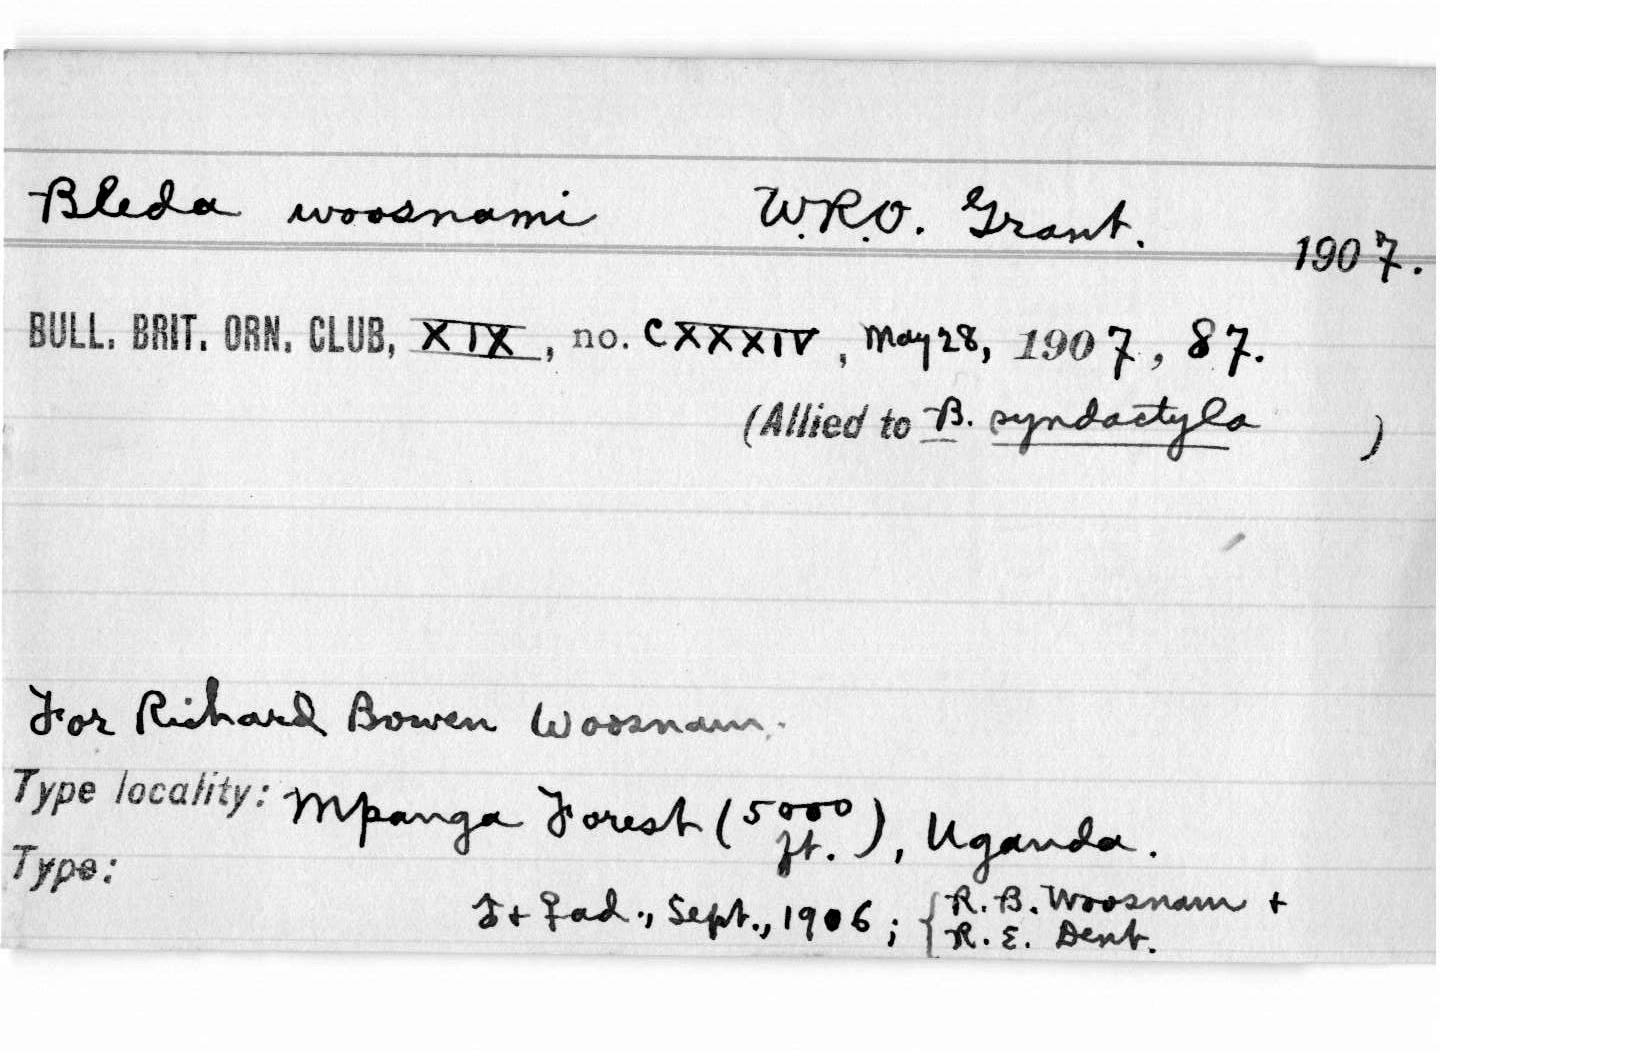 Bleda woosnami W.R.O. Grant. 1907.
BULL. BRIT. ORN. CLUB, XIX, no. CXXXIV, May 28, 1907, 87.
(Allied to B. syndactyla )
For Richard Bowen Woosnam.
Type locality: Mpanga Forest (5000 ft.), Uganda.
Type:
♂ + ♀ ad., Sept., 1906; { R. B. Woosnam +
R. E. Dent.